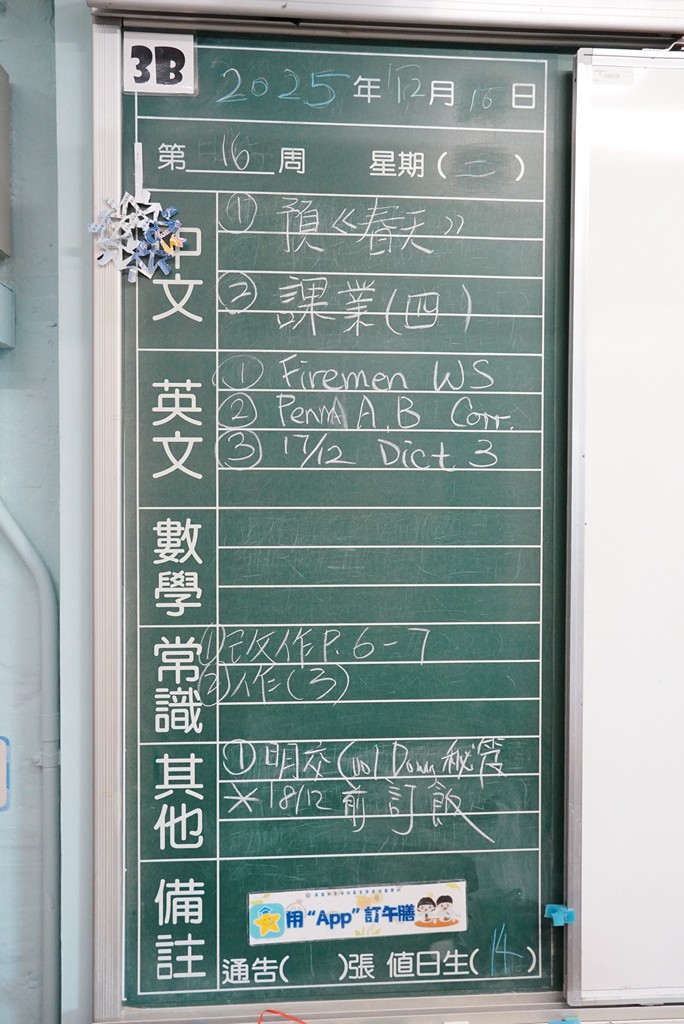 3B
2025年12月16日
第16周 星期(二)
中文
① 預《春天》
② 課業(四)
英文
① Firemen WS
② Penm A, B Corr.
③ 17/12 Dict 3
數學
常識
① 改作P.6-7
② 作(3)
其他
① 明交
* 18/12前訂飯
備註
用“App”訂午膳
通告( )張 值日生(14)